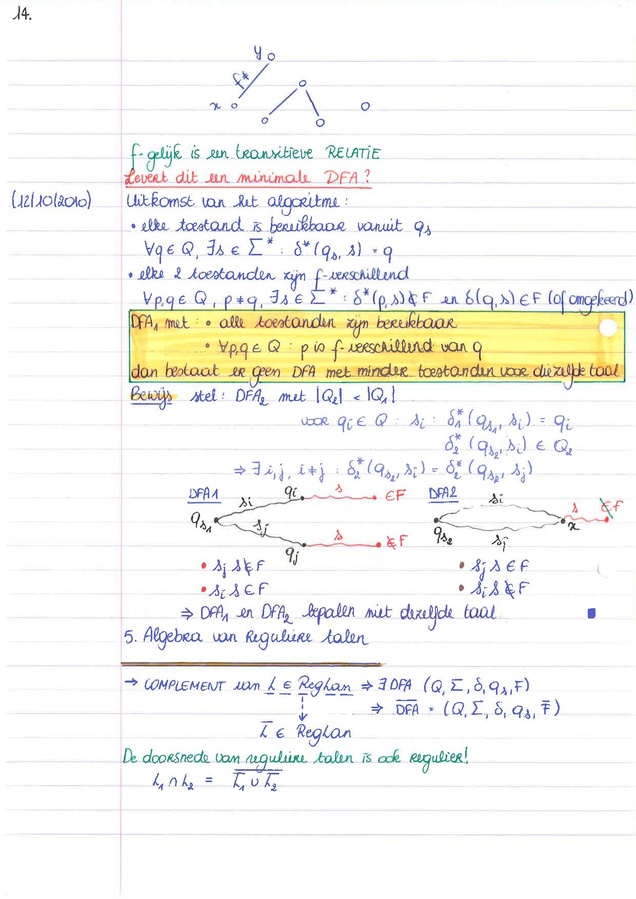 14.
y
f*
x
f-gelijk is een transitieve RELATIE
Levert dit een minimale DFA?
(12/10/2010) Uitkomst van het algoritme:
• elke toestand is bereikbaar vanuit qs
∀q ∈ Q, ∃s ∈ Σ* : δ*(qs, s) = q
• elke 2 toestanden zijn f-verschillend
∀p,q ∈ Q, p ≠ q, ∃s ∈ Σ* : δ*(p,s) ∉ F en δ(q,s) ∈ F (of omgekeerd)
DFA₁ met: • alle toestanden zijn bereikbaar
• ∀p,q ∈ Q : p is f-verschillend van q
dan bestaat er geen DFA met minder toestanden voor diezelfde taal
Bewijs stel: DFA₂ met |Q₂| < |Q₁|
voor qi ∈ Q : si : δ₁*(qs₁, si) = qi
δ₂*(qs₂, si) ∈ Q₂
⇒ ∃i,j, i≠j : δ₂*(qs₂, si) = δ₂*(qs₂, sj)
DFA1 si qi s ∈F
qs₁ sj qj s ∉F
DFA2 si s ∈F
qs₂ sj x
• sj s ∉ F • sj s ∈ F
• si s ∈ F • si s ∉ F
⇒ DFA₁ en DFA₂ bepalen niet dezelfde taal
5. Algebra van Reguliere talen
→ COMPLEMENT van L ∈ RegLan ⇒ ∃ DFA (Q, Σ, δ, qs, F)
⇒ D̅F̅A̅ = (Q, Σ, δ, qs, F̅)
L̅ ∈ RegLan
De doorsnede van reguliere talen is ook regulier!
L₁ ∩ L₂ = L̅₁̅ ∪ L̅₂̅